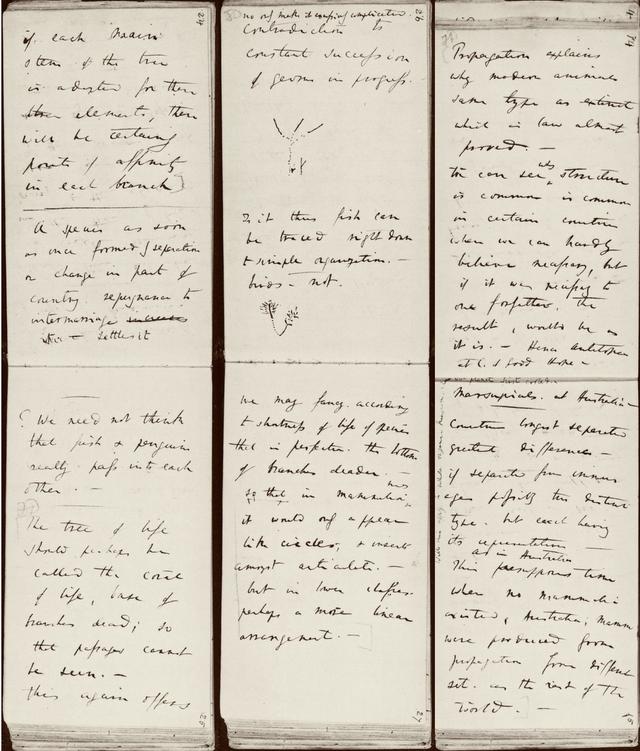 24
if each main
stem of the tree
is adapted for these
three elements, there
will be certainly
points of affinity
in each branch
A species as soon
as once formed by separation
or change in part of
country. repugnance to
intermarriage increases
settles it
? We need not think
that fish & penguins
really pass into each
other. —
The tree of life
should perhaps be
called the coral
of life, base of
branches dead; so
that passages cannot
be seen. —
this again offers
25
26
no only makes it excessively complicated.
contradiction to
constant succession
of germs in progress. —
Is it thus fish can
be traced right down
to simple organization. —
birds — not.
We may fancy. according
to shortness of life of species
that in perfection. the bottom
of branches deaden.
so that in mammalia
it would only appear
like circles; & insects
amongst articulata. —
but in lower classes
perhaps a more linear
arrangement. —
27
14
Propagation explains
why modern animals
same type as extinct
which is law almost
proved. —
We can see why structure
is common is common
in certain countries
when we can hardly
believe necessary, but
if it was necessary to
one forefather, the
result, would be as
it is. — Hence antelopes
at C. of Good Hope —
Marsupials. at Australia —
Countries longest separated
greatest differences —
if separated from immens
ages possibly two distinct
type. but each having
its representatives —
as in Australia
This presupposes time
when no mammalia
existed; Australia; Mamm.
were produced from
propagation from different
set. as the rest of the
world. —
15